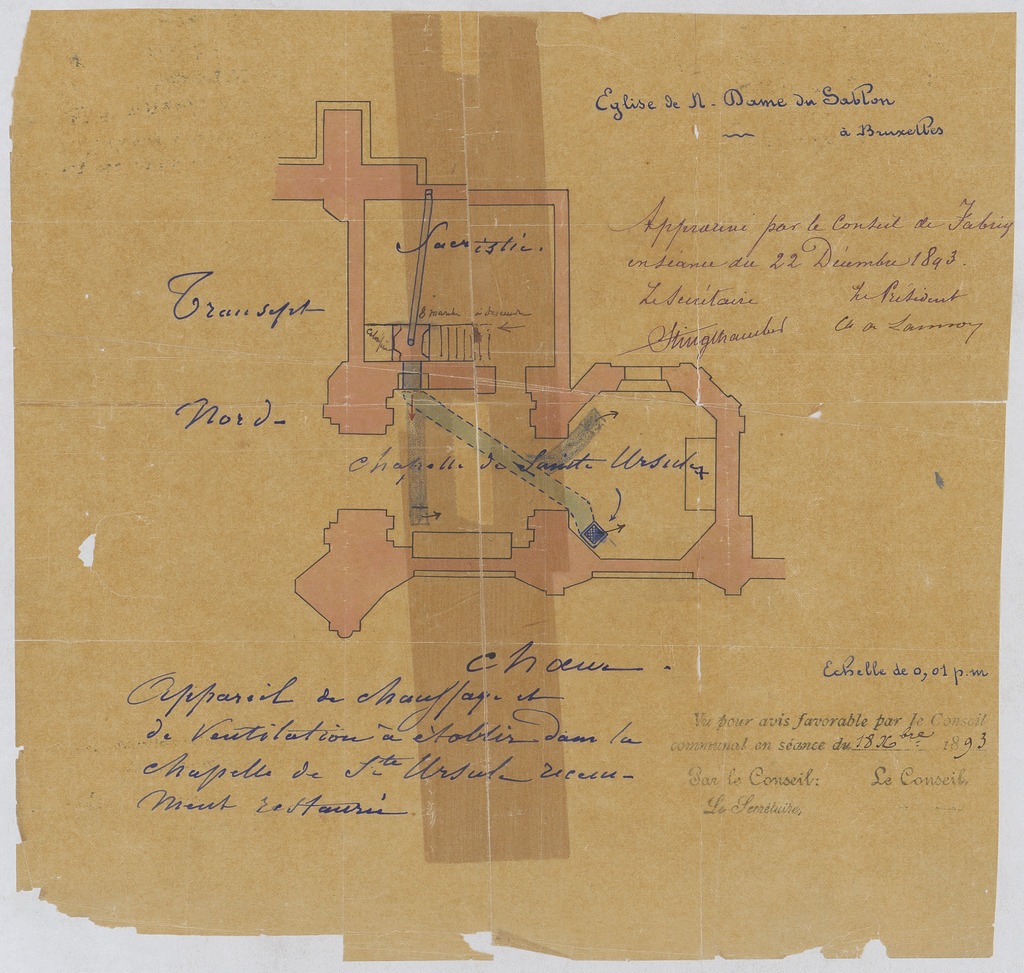 Eglise de N. Dame du Sablon
à Bruxelles
Approuvé par le Conseil de Fabriq
en séance du 22 Décembre 1893.
Le Secrétaire Le Président
Sacristie.
8 marches à descendre
Transept
Nord
Chapelle de Sainte Ursule
Chœur.
Echelle de 0,01 p.m
Appareil de chauffage et
de Ventilation à établir dans la
chapelle de Ste Ursule recem-
ment restaurée.
Vu pour avis favorable par le Conseil
communal en séance du 18 Xbre 1893
Par le Conseil: Le Conseil,
Le Secrétaire,